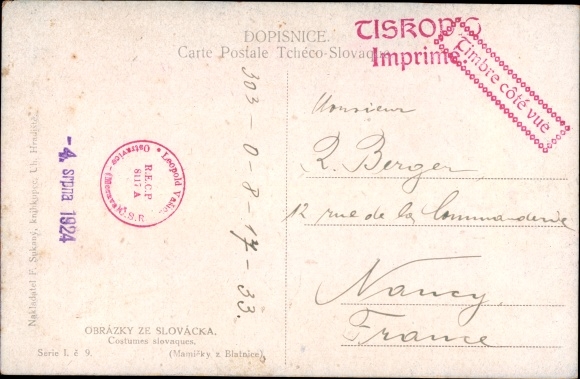 DOPISNICE.
Carte Postale Tchéco-Slovaque
TISKOPIS
Imprimé
Timbre côté vue
303-0-8-17-33.
Monsieur
R. Berger
12 rue de la Commanderie
Nancy
France
- 4. srpna 1924
Leopold
Ostravice - (Morava) Č.S.R
R.E.C.P
8117 A
Nakladatel F. Sukaný, knihkupec, Uh. Hradiště.
OBRÁZKY ZE SLOVÁCKA.
Costumes slovaques.
Série I. č 9.
(Mamičky z Blatnice)